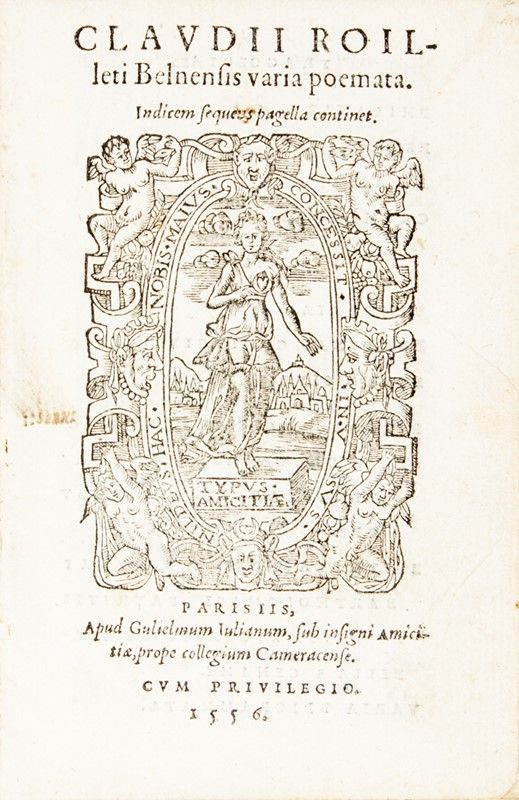 CLAVDII ROIL-
leti Belnensis varia poemata.
Indicem sequens pagella continet.
NIL DEVS HAC NOBIS MAIVS CONCESSIT IN
TYPVS
AMICITIÆ.
PARISIIS,
Apud Gulielmum Iulianum, sub insigni Amici-
tiæ, prope collegium Cameracense.
CVM PRIVILEGIO.
1556.